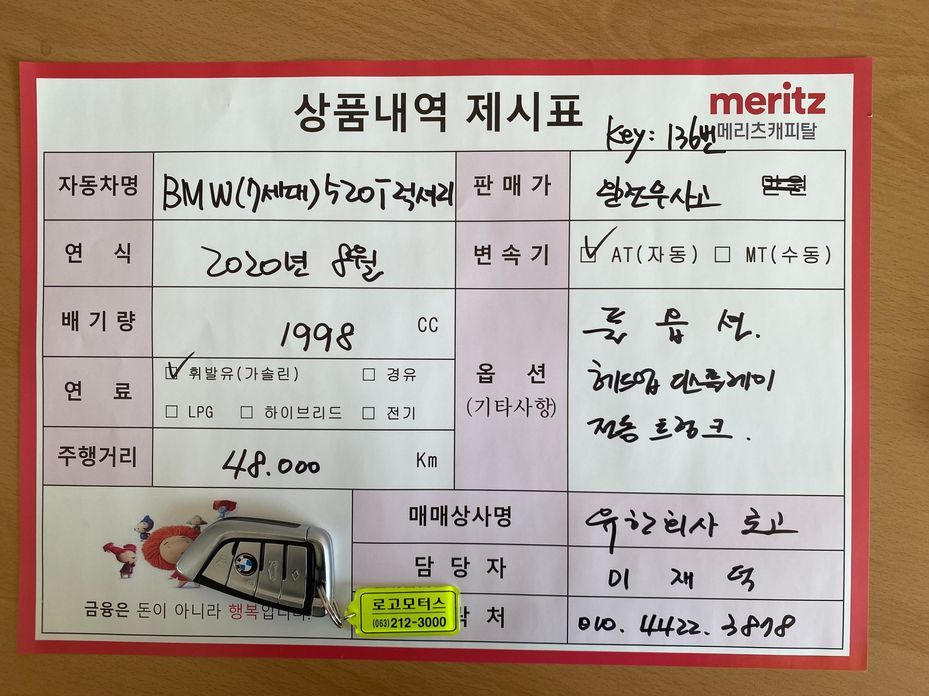 상품내역 제시표
meritz
메리츠캐피탈
Key: 136번
자동차명 BMW(7세대)520i 럭셔리 판매가 완전무사고 만원
연 식 2020년 8월 변속기 ☑ AT(자동) ☐ MT(수동)
배기량 1998 CC
연 료 ☑ 휘발유(가솔린) ☐ 경유
☐ LPG ☐ 하이브리드 ☐ 전기
주행거리 48.000 Km
옵 션
(기타사항)
풀 옵 션.
헤드업 디스플레이
전동 트렁크.
매매상사명 유한회사 로고
담 당 자 이 재 덕
락 처 010. 4422. 3878
금융은 돈이 아니라 행복입니다!
로고모터스
(063)212-3000